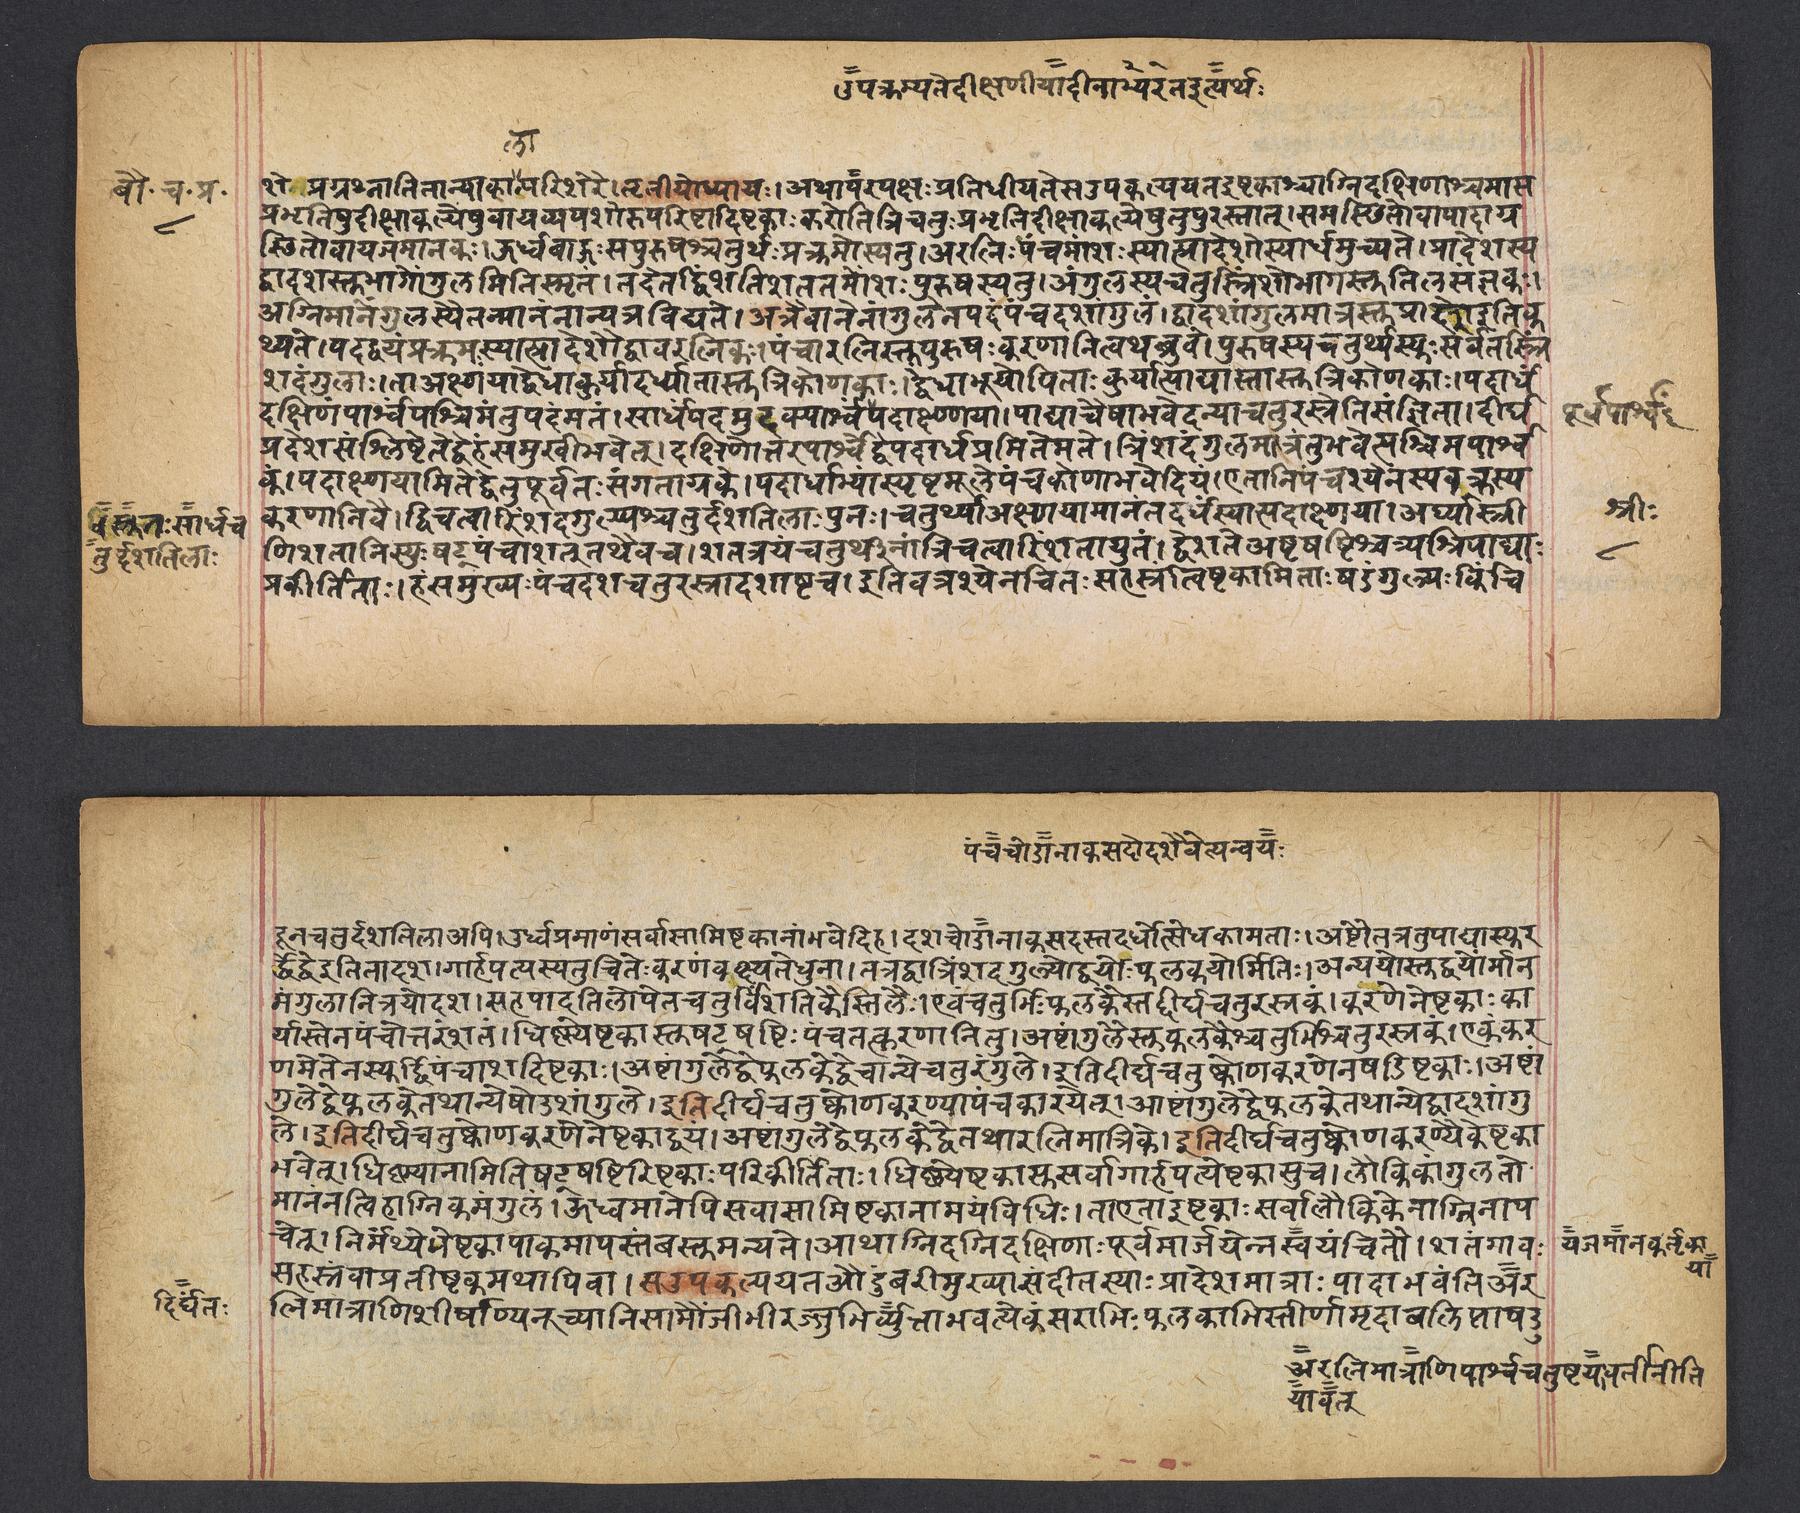 उपक्रम्यते दीक्षणीयादीनाभ्य इत्यर्थः
बौ. च. प्र.
प्रभृतिषुदीक्षाकल्पेषुवायव्यपशोरुपरिष्टादिष्टकाः करोतित्रिचतुःप्रभृतिदीक्षाकल्पेषुतुपुरस्तात्। समस्थितो
स्थितोवायजमानकः। ऊर्ध्वबाहुः सपुरुषश्चतुर्थः प्रक्रमोस्यतु। अरत्निः पंचमांशः स्यात्प्रादेशोस्यार्धमुच्यते। प्रादेशस्य
द्वादशस्तुभागोंगुलमितिस्मृतं। तदेतद्विंशतिशततमोंशः पुरुषस्यतु। अंगुलस्यचतुस्त्रिंशोभागस्तुतिलसंज्ञकः।
अग्निमानेंगुलस्यैतन्मानंनान्यत्रविद्यते। अत्रैवानेनांगुलेनपदंपंचदशांगुलं। द्वादशांगुलमात्रस्तु
थ्यते। पदद्वयंप्रक्रमस्स्यात्प्रादेशौद्वावरत्निकः। पंचारत्निस्तुपुरुषः करणानित्वथब्रुवे। पुरुषस्यचतुर्थ्यस्युः सर्वतस्त्रिं
शदंगुलाः। ताअक्ष्णयाद्वेधाकुर्यादर्ध्यातास्तुत्रिकोणकाः। द्वेधाभूयोपिताः कुर्यात्पाद्यास्तास्तुत्रिकोणकाः। पदार्धं
दक्षिणंपार्श्वंपश्चिमंतुपदंमतं। सार्धंपदमुदक्पार्श्वंपदाक्ष्णया। पाद्याचैषाभवेदन्याचतुरस्रेतिसंज्ञिता। दीर्घ
प्रदेशसंश्लिष्टेतेद्वेहंसमुखीभवेत्। दक्षिणोत्तरपार्श्वेद्विपदार्धप्रमितेमते। त्रिंशदंगुलमात्रंतुभवेत्पश्चिमपार्श्व
कं। पदाक्ष्णयामितेद्वेतुपूर्वतः संगताग्रके। पदार्धाभ्यांस्पृष्टमूलेपंचकोणाभवेदियं। एतानिपंचश्येनस्यवक्रस्य
करणानिवै। द्विचत्वारिंशदंगुल्यश्चतुर्दशतिलाः पुनः। चतुर्थ्याअक्ष्णयामानंतदर्धंस्यात्पदाक्ष्णया। अर्ध्यास्त्री
श्रीः
सार्धच
तुर्दशतिलाः
णिशतानिस्युः षट्पंचाशत्तथैवच। शतत्रयंचतुर्थीनांत्रिचत्वारिंशतायुतं। द्वेशतेअष्टषष्टिश्च
प्रकीर्तिताः। हंसमुख्यः पंचदशचतुरस्रादशाष्टच। इतिवक्रश्येनचितः सहस्रंत्विष्टकामिताः षडंगुल्यः किंचि
पंचचोडानाकसदोदशैवेत्यन्वयः
दूनचतुर्दशतिलाअपि। उर्ध्वप्रमाणंसर्वासामिष्टकानांभवेदिह। दशचोडानाकसदस्तदर्धोत्सेधकामताः। अष्टौ
द्वेद्वेइतितादश। गार्हपत्यस्यतुचितेः करणंवक्ष्यतेधुना। तत्रद्वात्रिंशदंगुल्योद्वयोः फलकयोर्मितिः। अन्ययोस्तुद्वयोर्मान
मंगुलानित्रयोदश। सहपादतिलोपेतचतुर्विंशतिकैस्तिलैः। एवंचतुर्भिः फलकैस्तद्दीर्घचतुरस्रकं। करणेनेष्टकाः का
र्यास्तेनपंचोत्तरंशतं। धिष्ण्येष्टकास्तुषट्षष्टिः पंचतत्करणानितु। अष्टांगुलैस्तुफलकैश्चतुर्भिश्चतुरस्रकं। एकंकर
णमेतेनस्युर्द्विपंचाशदिष्टकाः। अष्टांगुलेद्वेफलकेद्वेचान्येचतुरंगुले। इतिदीर्घचतुष्कोणकरणेनषडिष्टकाः। अष्टां
गुलेद्वेफलकेतथान्येषोडशांगुले। इतिदीर्घचतुष्कोणकरण्यापंचकारयेत्। अष्टांगुलेद्वेफलकेतथान्येद्वादशांगु
ले। इतिदीर्घचतुष्कोणकरणेनेष्टकाद्वयं। अष्टांगुलेद्वेफलकेद्वेतथारत्निमात्रिके। इतिदीर्घचतुष्कोणकरण्यैकेष्टका
भवेत्। धिष्ण्यानामितिषट्षष्टिरिष्टकाः परिकीर्तिताः। धिष्ण्येष्टकास्तुसर्वागार्हपत्येष्टकासुच। लौकिकांगुलतो
मानंनत्विहाग्निकमंगुलं। ऊर्ध्वमानेपिसर्वासामिष्टकानामयंविधिः। ताएताइष्टकाः सर्वालौकिकेनाग्निनाप
चेत्। निर्मंथ्येनेष्टकापाकमापस्तंबस्तुमन्यते। आथाग्निदग्निदक्षिणाः पूर्वमार्जयेन्नस्वयंचितौ। शतंगावः
यजमानकर्तृका
यां
सहस्रंवाप्रतीष्टकमथापिवा। सउपकल्पयतऔदुंबरीमुख्यासंदीतस्याः प्रादेशमात्राः पादाभवंतिअर
दिर्घतः
त्निमात्राणिशीर्षाण्यनूच्यानिसामौंजीभीरज्जुभिर्व्युताभवत्येकंसराभिः फलकाभिस्तीर्णामृदा
अरत्निमात्राणिपार्श्वचतुष्टय
यावत्